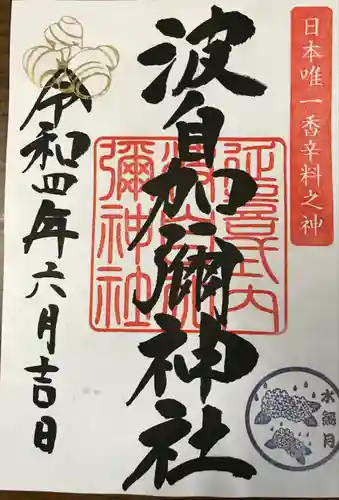 日本唯一香辛料之神
波自加彌神社
延喜式内
波自加
彌神社
令和四年六月吉日
水無月